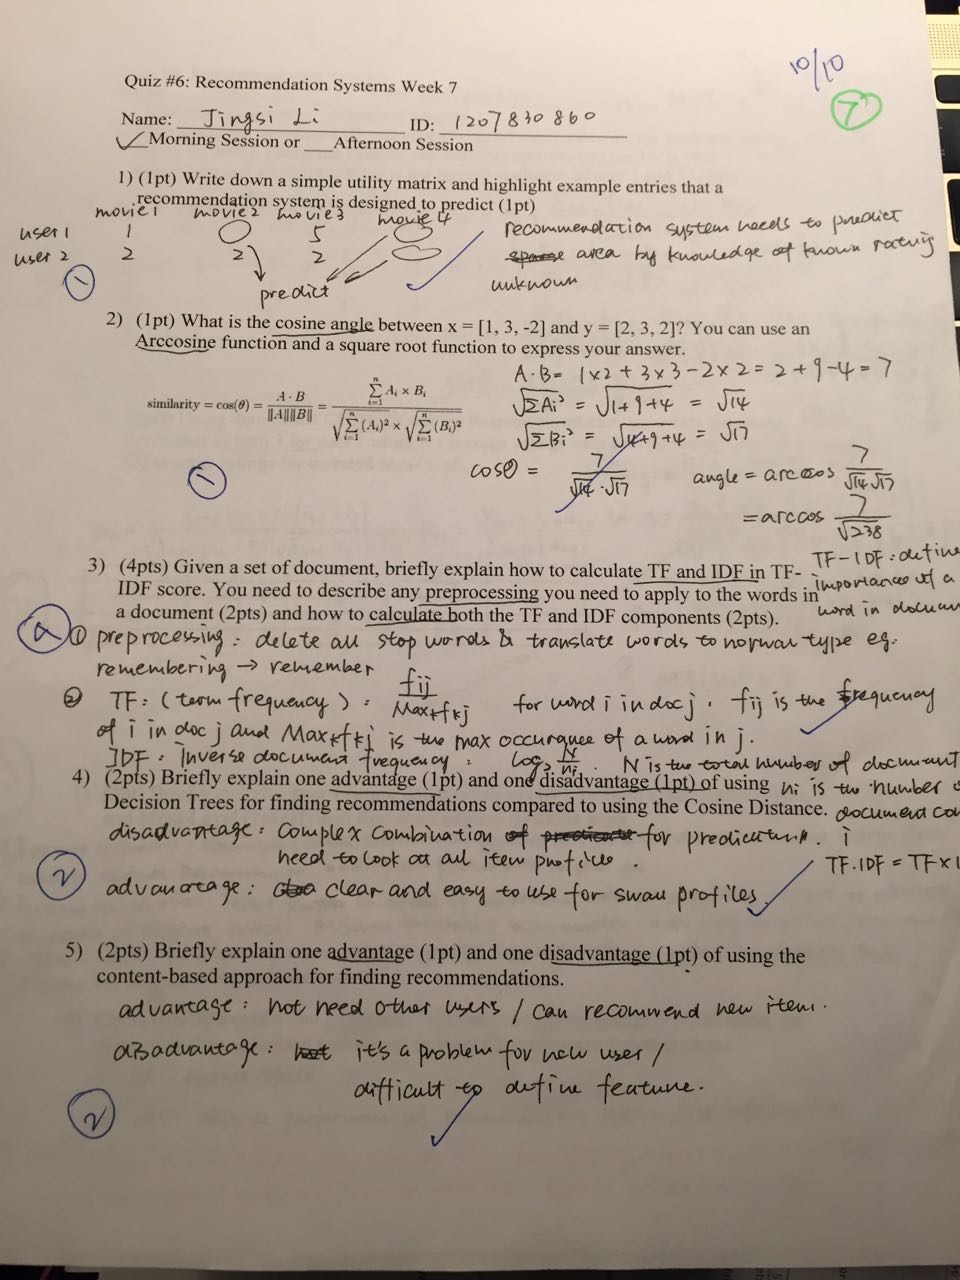 10/10
7
Quiz #6: Recommendation Systems Week 7
Name: Jingsi Li ID: 1207830860
✓ Morning Session or ___Afternoon Session
1) (1pt) Write down a simple utility matrix and highlight example entries that a
recommendation system is designed to predict (1pt)
movie1 movie2 movie3 movie4
user1 1 5
user2 2 2 2
predict
recommendation system needs to predict
sparse area by knowledge of known rating
unknown
1
2) (1pt) What is the cosine angle between x = [1, 3, -2] and y = [2, 3, 2]? You can use an
Arccosine function and a square root function to express your answer.
similarity = cos(θ) = A · B / ‖A‖‖B‖ = ∑ⁿᵢ₌₁ Aᵢ × Bᵢ / √∑ⁿᵢ₌₁ (Aᵢ)² × √∑ⁿᵢ₌₁ (Bᵢ)²
A·B = 1×2 + 3×3 - 2×2 = 2+9-4 = 7
√ΣAi² = √1+9+4 = √14
√ΣBi² = √4+9+4 = √17
cosθ = 7 / √14·√17
angle = arccos 7 / √14 √17
= arccos 7 / √238
1
3) (4pts) Given a set of document, briefly explain how to calculate TF and IDF in TF-
IDF score. You need to describe any preprocessing you need to apply to the words in
a document (2pts) and how to calculate both the TF and IDF components (2pts).
TF-IDF: define
importances of a
word in docum
① preprocessing: delete all stop words & translate words to normal type eg.
remembering → remember
② TF: (term frequency): fij / Maxkfkj for word i in doc j. fij is the frequency
of i in doc j and Maxkfkj is the max occurance of a word in j.
IDF: Inverse document frequency: log₂ N/ni. N is the total number of document
ni is the number
document con
i
TF.IDF = TF×I
4
4) (2pts) Briefly explain one advantage (1pt) and one disadvantage (1pt) of using
Decision Trees for finding recommendations compared to using the Cosine Distance.
disadvantage: Complex combination of for
need to look at all item profiles.
advantage: clear and easy to use for profiles.
2
5) (2pts) Briefly explain one advantage (1pt) and one disadvantage (1pt) of using the
content-based approach for finding recommendations.
advantage: not need other users / can recommend new item.
disadvantage: it's a problem for new user /
difficult to define feature.
2